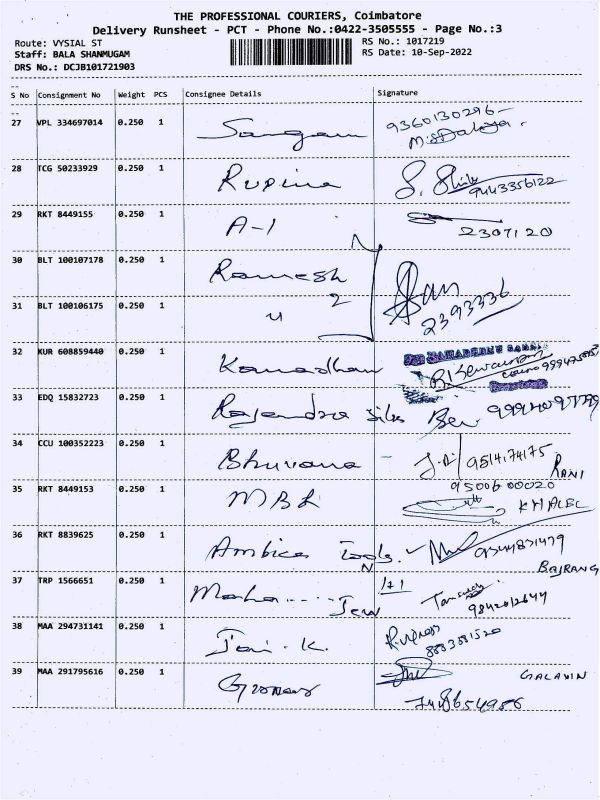 THE PROFESSIONAL COURIERS, Coimbatore
Delivery Runsheet - PCT - Phone No.:0422-3505555 - Page No.:3
Route: VYSIAL ST RS No.: 1017219
Staff: BALA SHANMUGAM RS Date: 10-Sep-2022
DRS No.: DCJB101721903
S No Consignment No Weight PCS Consignee Details Signature
27 VPL 334697014 0.250 1 Sangam 9360130296
28 TCG 50233929 0.250 1 Rupina 9443356122
29 RKT 8449155 0.250 1 A-1 2307120
30 BLT 100107178 0.250 1 Ramesh
31 BLT 100106175 0.250 1 2 2393336
32 KUR 608859440 0.250 1
33 EDQ 15832723 0.250 1 Rajendra silks
34 CCU 100352223 0.250 1 Bhuvana 9514174175 RANI
35 RKT 8449153 0.250 1 MBK 9500600020 KHALEL
36 RKT 8839625 0.250 1 Ambica Tools BAJRANG
37 TRP 1566651 0.250 1 Maha ..... Jew 9842012644
38 MAA 294731141 0.250 1 Jai . K.
39 MAA 291795616 0.250 1